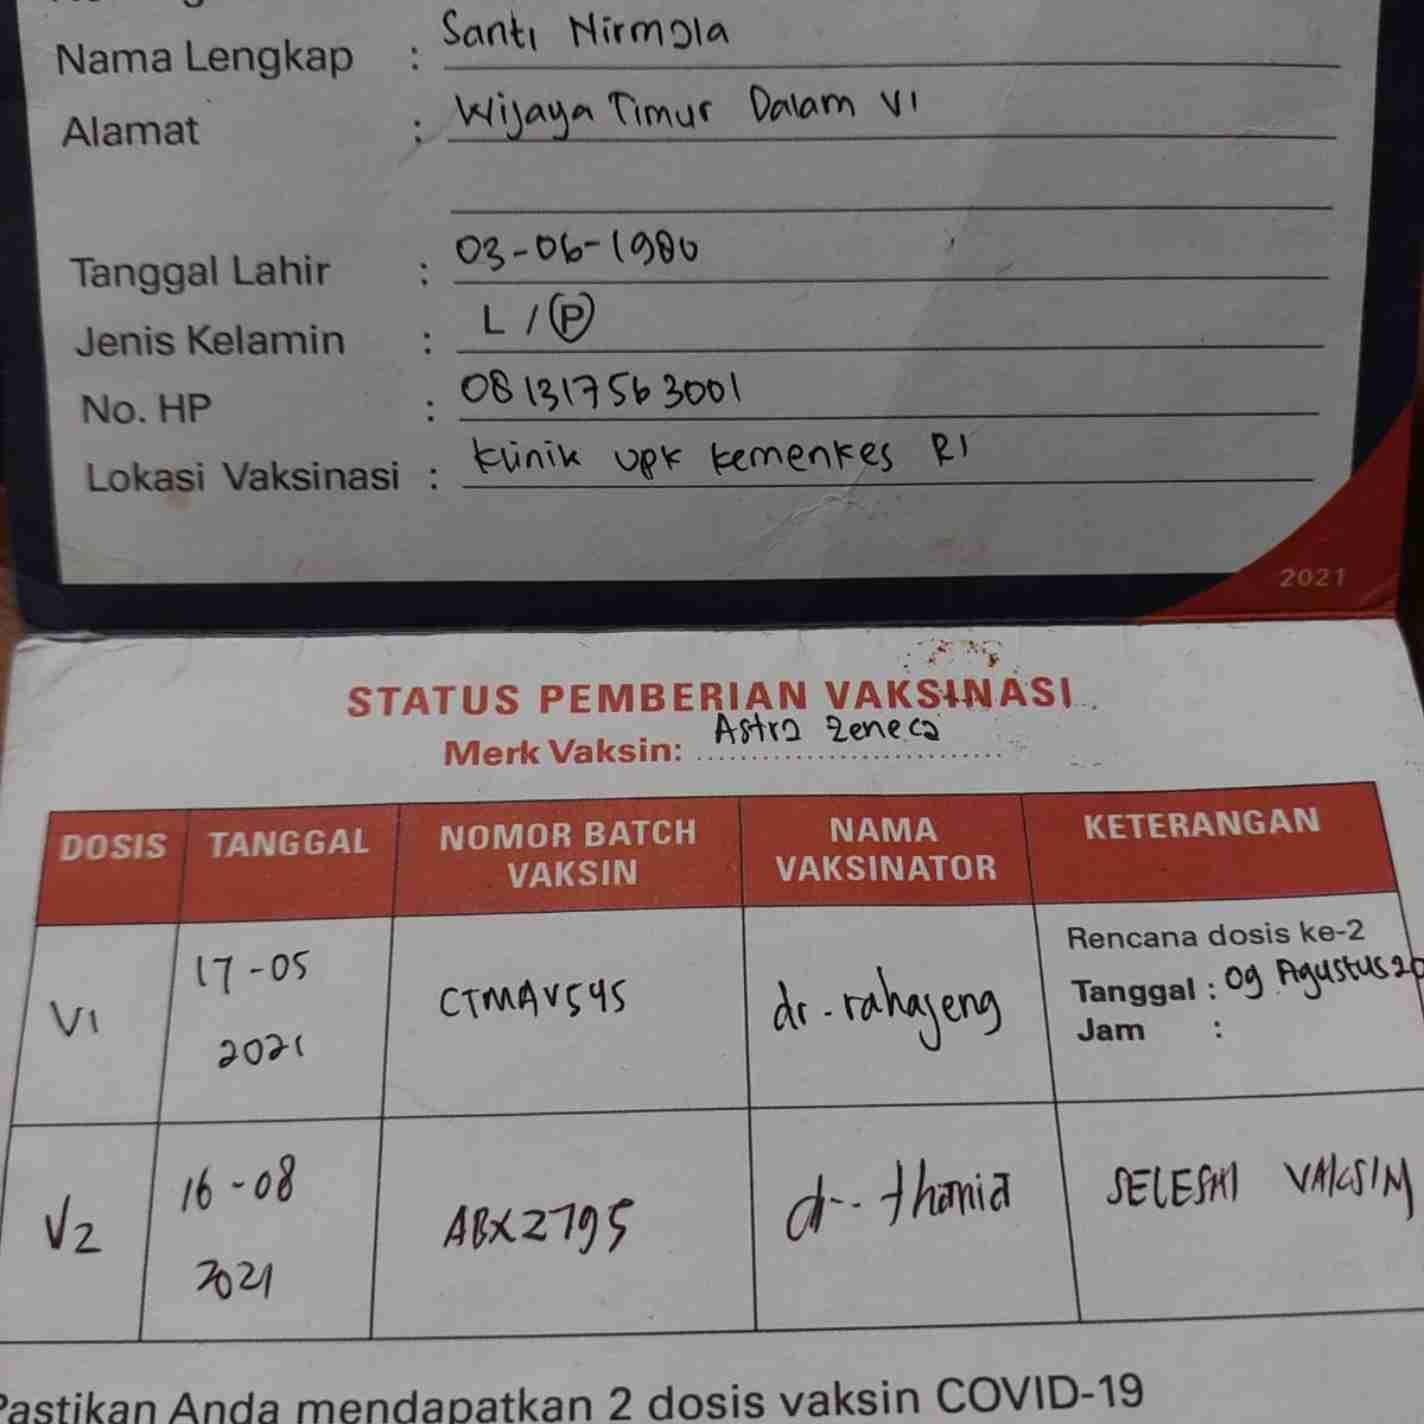 Nama Lengkap : Santi Nirmala
Alamat : Wijaya Timur Dalam VI
Tanggal Lahir : 03-06-1980
Jenis Kelamin : L / P
No. HP : 081317563001
Lokasi Vaksinasi : Klinik UPK Kemenkes RI
2021
STATUS PEMBERIAN VAKSINASI
Merk Vaksin: Astra Zeneca
DOSIS TANGGAL NOMOR BATCH VAKSIN NAMA VAKSINATOR KETERANGAN
V1 17-05 2021 CTMAV545 dr. rahajeng Rencana dosis ke-2
Tanggal : 09 Agustus 20
Jam :
V2 16-08 2021 ABX2795 dr. thania SELESAI VAKSIN
Pastikan Anda mendapatkan 2 dosis vaksin COVID-19